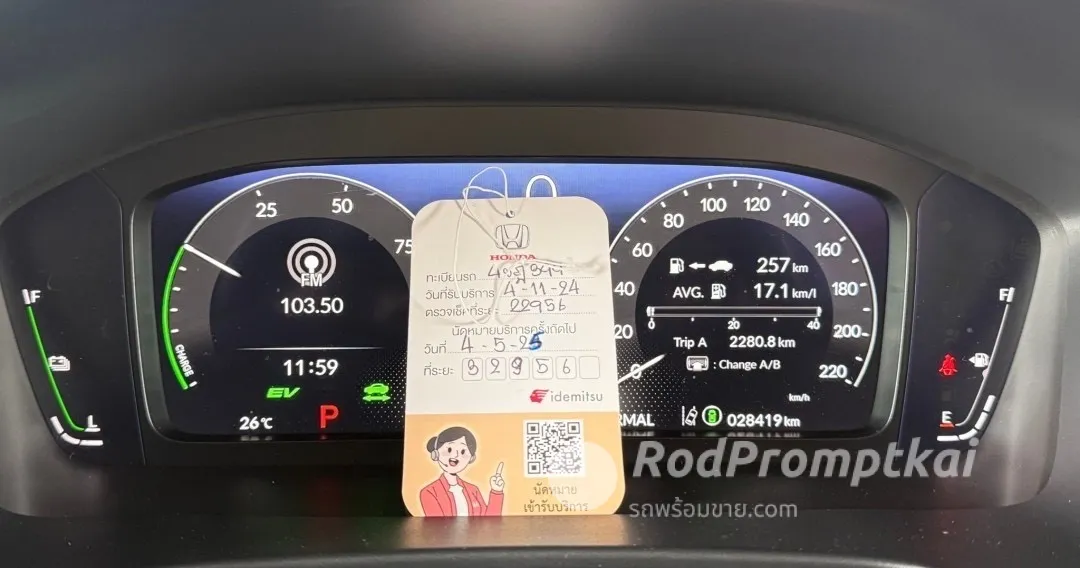 25
50
75
FM
103.50
11:59
CHARGE
EV
26°C
P
F
L
HONDA
ทะเบียนรถ
วันที่รับบริการ 4-11-24
ตรวจเช็คที่ระยะ 22956
นัดหมายบริการครั้งถัดไป
วันที่ 4-5-25
ที่ระยะ: 32956
idemitsu
นัดหมาย
เข้ารับบริการ
0
20
40
60
80
100
120
140
160
180
200
220
km/h
257 km
AVG. 17.1 km/l
0 20 40
Trip A 2280.8 km
: Change A/B
028419 km
F
E
RodPromptkai
รถพร้อมขาย.com